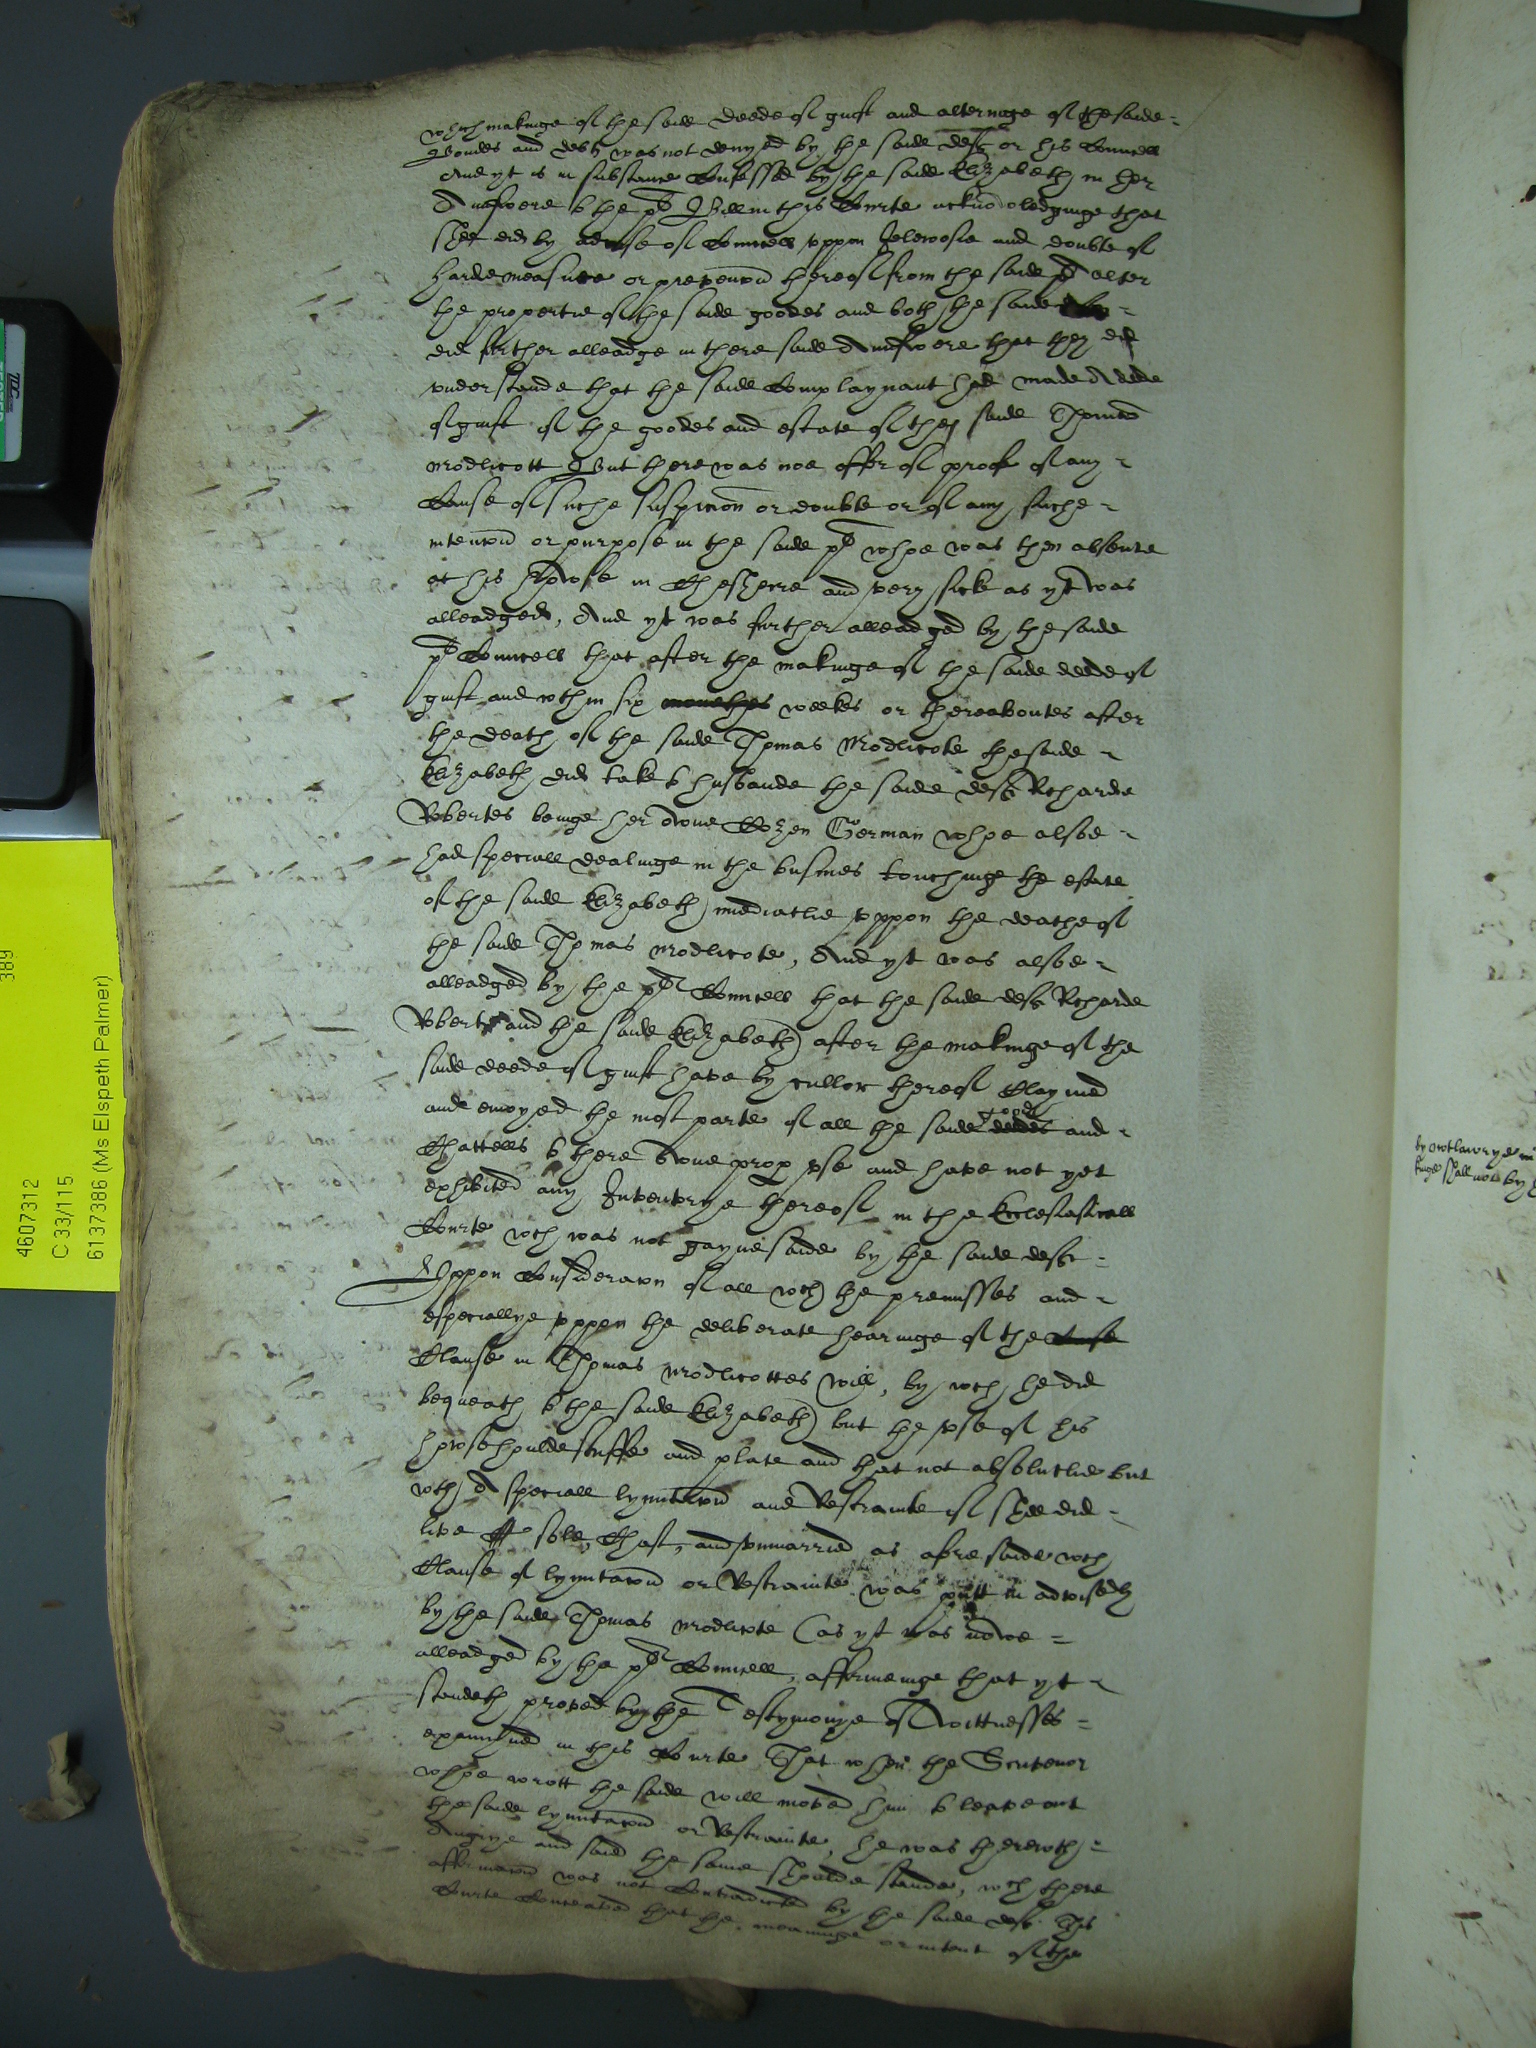 which makinge of the saide deede of guift and alteringe of the saide
Goodes and debts was not denyed by the saide deft or his Councell
And yt is in substance Confessed by the saide Elizabeth in her
Answere to the pl Bill in this Courte acknowledginge that
shee did by advise of Councell uppon Jelowsie and doubte of
harde measure or prevencon thereof from the saide pl alter
the propertie of the saide goodes and both the saide
did further alleadge in there saide Answere that they did
understande that the saide Complaynant had made A deede
of guift of the goodes and estate of the saide Thomas
Modlicott But there was noe offer of proofe of any
Cause of suche suspicon or doubte or of any suche
intencon or purpose in the saide pl whoe was then absente
at his howse in Cheshere and very sicke as yt was
alleadged, And yt was further alleadged by the saide
pl Councell that after the makinge of the saide deede of
guift and wthin six monethes weekes or thereaboutes after
the death of the saide Thomas Modlicote the saide
Elizabeth did take to husbande the saide deft Richarde
Robertes beinge her owne Cozen German whoe alsoe
had speciall dealinge in the busines touchinge the estate
of the saide Elizabeth imediatlie uppon the deathe of
the saide Thomas Modlicote, And yt was alsoe
alleadged by the pl Councell that the saide deft Richarde
Roberts and the saide Elizabeth after the makinge of the
saide deede of guift have by cullor thereof Claymed
and enioyed the most parte of all the saide goods deedes and
Chattells to there owne proper use and have not yet
exhibited any Inventorye thereof in the Ecclesiasticall
Courte wch was not gaynesaide by the saide deft
Uppon Consideracon of all wch the premisses and
especiallye uppon the deliberate hearinge of the
Clause in Thomas Modlicottes will, by wch he did
bequeath to the saide Elizabeth but the use of his
howsehouldestuffe and plate and that not absolutlie but
wth A speciall lymitacon and Restrainte if shee did
live sole, Chast, and unmarried as aforesaide wch
Clause of lymitacon or Restrainte was putt in advisedly
by the saide Thomas Modlicote (as yt was nowe
alleadged by the pl Councell, affirmeinge that yt
standeth proved by the Testymonye of wittnesses
examined in this Courte That when the Scrivenor
whoe wrott the saide will moved him to leave out
the saide lymitacon or Restrainte, he was therewth
Angrye and said the same shoulde stande, wch there
affirmacon was not Contradicted by the saide deft This
Courte Conceaved that the meaninge or intent of the
by outlawrye
kinge shall not by
389
4607312
C 33/115
6137386 (Ms Elspeth Palmer)